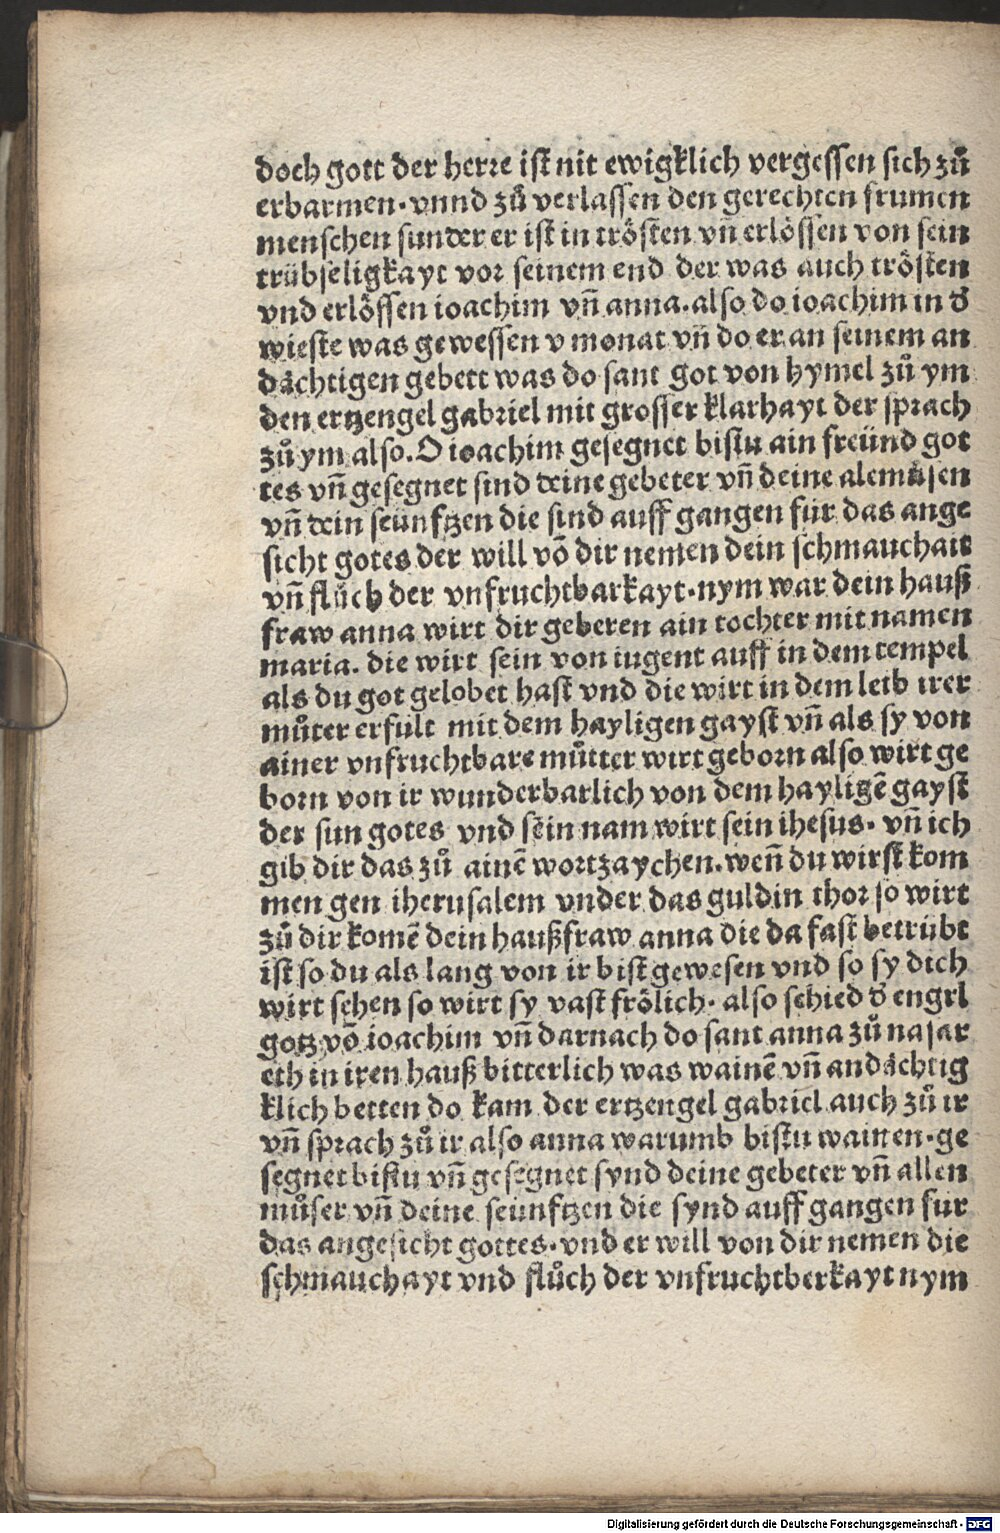 doch gott der herre ist nit ewigklich vergessen sich zů
erbarmen. vnnd zů verlassen den gerechten frumen
menschen sunder er ist in trösten vñ erlössen von sein
trübseligkayt vor seinem end der was auch trösten
vnd erlössen ioachim vñ anna. also do ioachim in d̕
wieste was gewessen v monat vñ do er an seinem an
dächtigen gebett was do sant got von hymel zů ym
den ertzengel gabriel mit grosser klarhayt der sprach
zů ym also. O ioachim gesegnet bistu ain freünd got
tes vñ gesegnet sind deine gebeter vñ deine alemůsen
vñ dein seünftzen die sind auff gangen für das ange
sicht gotes der will võ dir nemen dein schmauchait
vñ flůch der vnfruchtbarkayt. nym war dein hauß
fraw anna wirt dir geberen ain tochter mit namen
maria. die wirt sein von iugent auff in dem tempel
als du got gelobet hast vnd die wirt in dem leib irer
můter erfült mit dem hayligen gayst vñ als sy von
ainer vnfruchtbare můtter wirt geborn also wirt ge
born von ir wunderbarlich von dem hayligẽ gayst
der sun gotes vnd sein nam wirt sein ihesus. vñ ich
gib dir das zů ainẽ wortzaychen. weñ du wirst kom
men gen iherusalem vnder das guldin thor so wirt
zů dir komẽ dein haußfraw anna die da fast betrübt
ist so du als lang von ir bist gewesen vnd so sy dich
wirt sehen so wirt sy vast frölich. also schied d̕ engel
gotz võ ioachim vñ darnach do sant anna zů nasar
eth in iren hauß bitterlich was wainẽ vñ andächtig
klich betten do kam der ertzengel gabriel auch zů ir
vñ sprach zů ir also anna warumb bistu wainen. ge
segnet bistu vñ gesegnet synd deine gebeter vñ allen
můser vñ deine seünftzen die synd auff gangen für
das angesicht gottes. vnd er will von dir nemen die
schmauchayt vnd flůch der vnfruchtberkayt nym
Digitalisierung gefördert durch die Deutsche Forschungsgemeinschaft - DFG